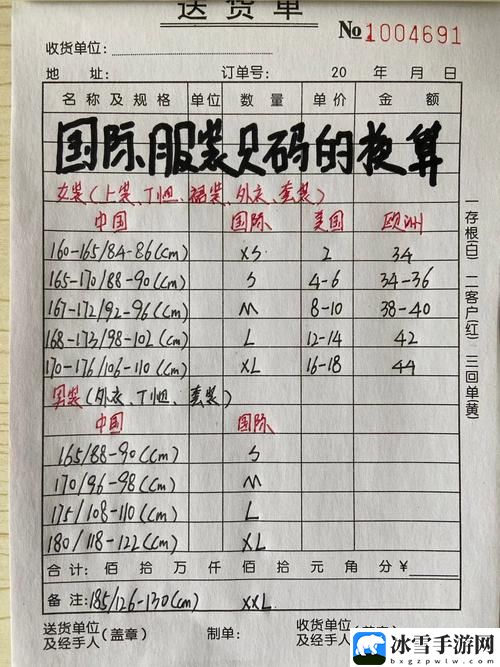 送货单
№1004691
收货单位：
地 址： 订单号： 20 年 月 日
名称及规格 单位 数量 单价 金额
国际服装尺码的换算
女装(上装、T恤、裙装、外衣、套装)
中国 国际 美国 欧洲
160-165/84-86(cm) XS 2 34
165-170/88-90(cm) S 4-6 34-36
167-172/92-96(cm) M 8-10 38-40
168-173/98-102(cm) L 12-14 42
170-176/106-110(cm) XL 16-18 44
男装(外衣、T恤、套装)
中国 国际
165/88-90(cm) S
170/96-98(cm) M
175/108-110(cm) L
180/118-122(cm) XL
合计： 佰 拾 万 仟 佰 拾 元 角 分 ¥
备注：185/126-130(cm) XXL
送货单位及经手人(盖章) 制单： 收货单位及经手人(盖章)
一存根(白) 二客户红) 三回单(黄)
冰雪手游网
bxgzpwlw.com